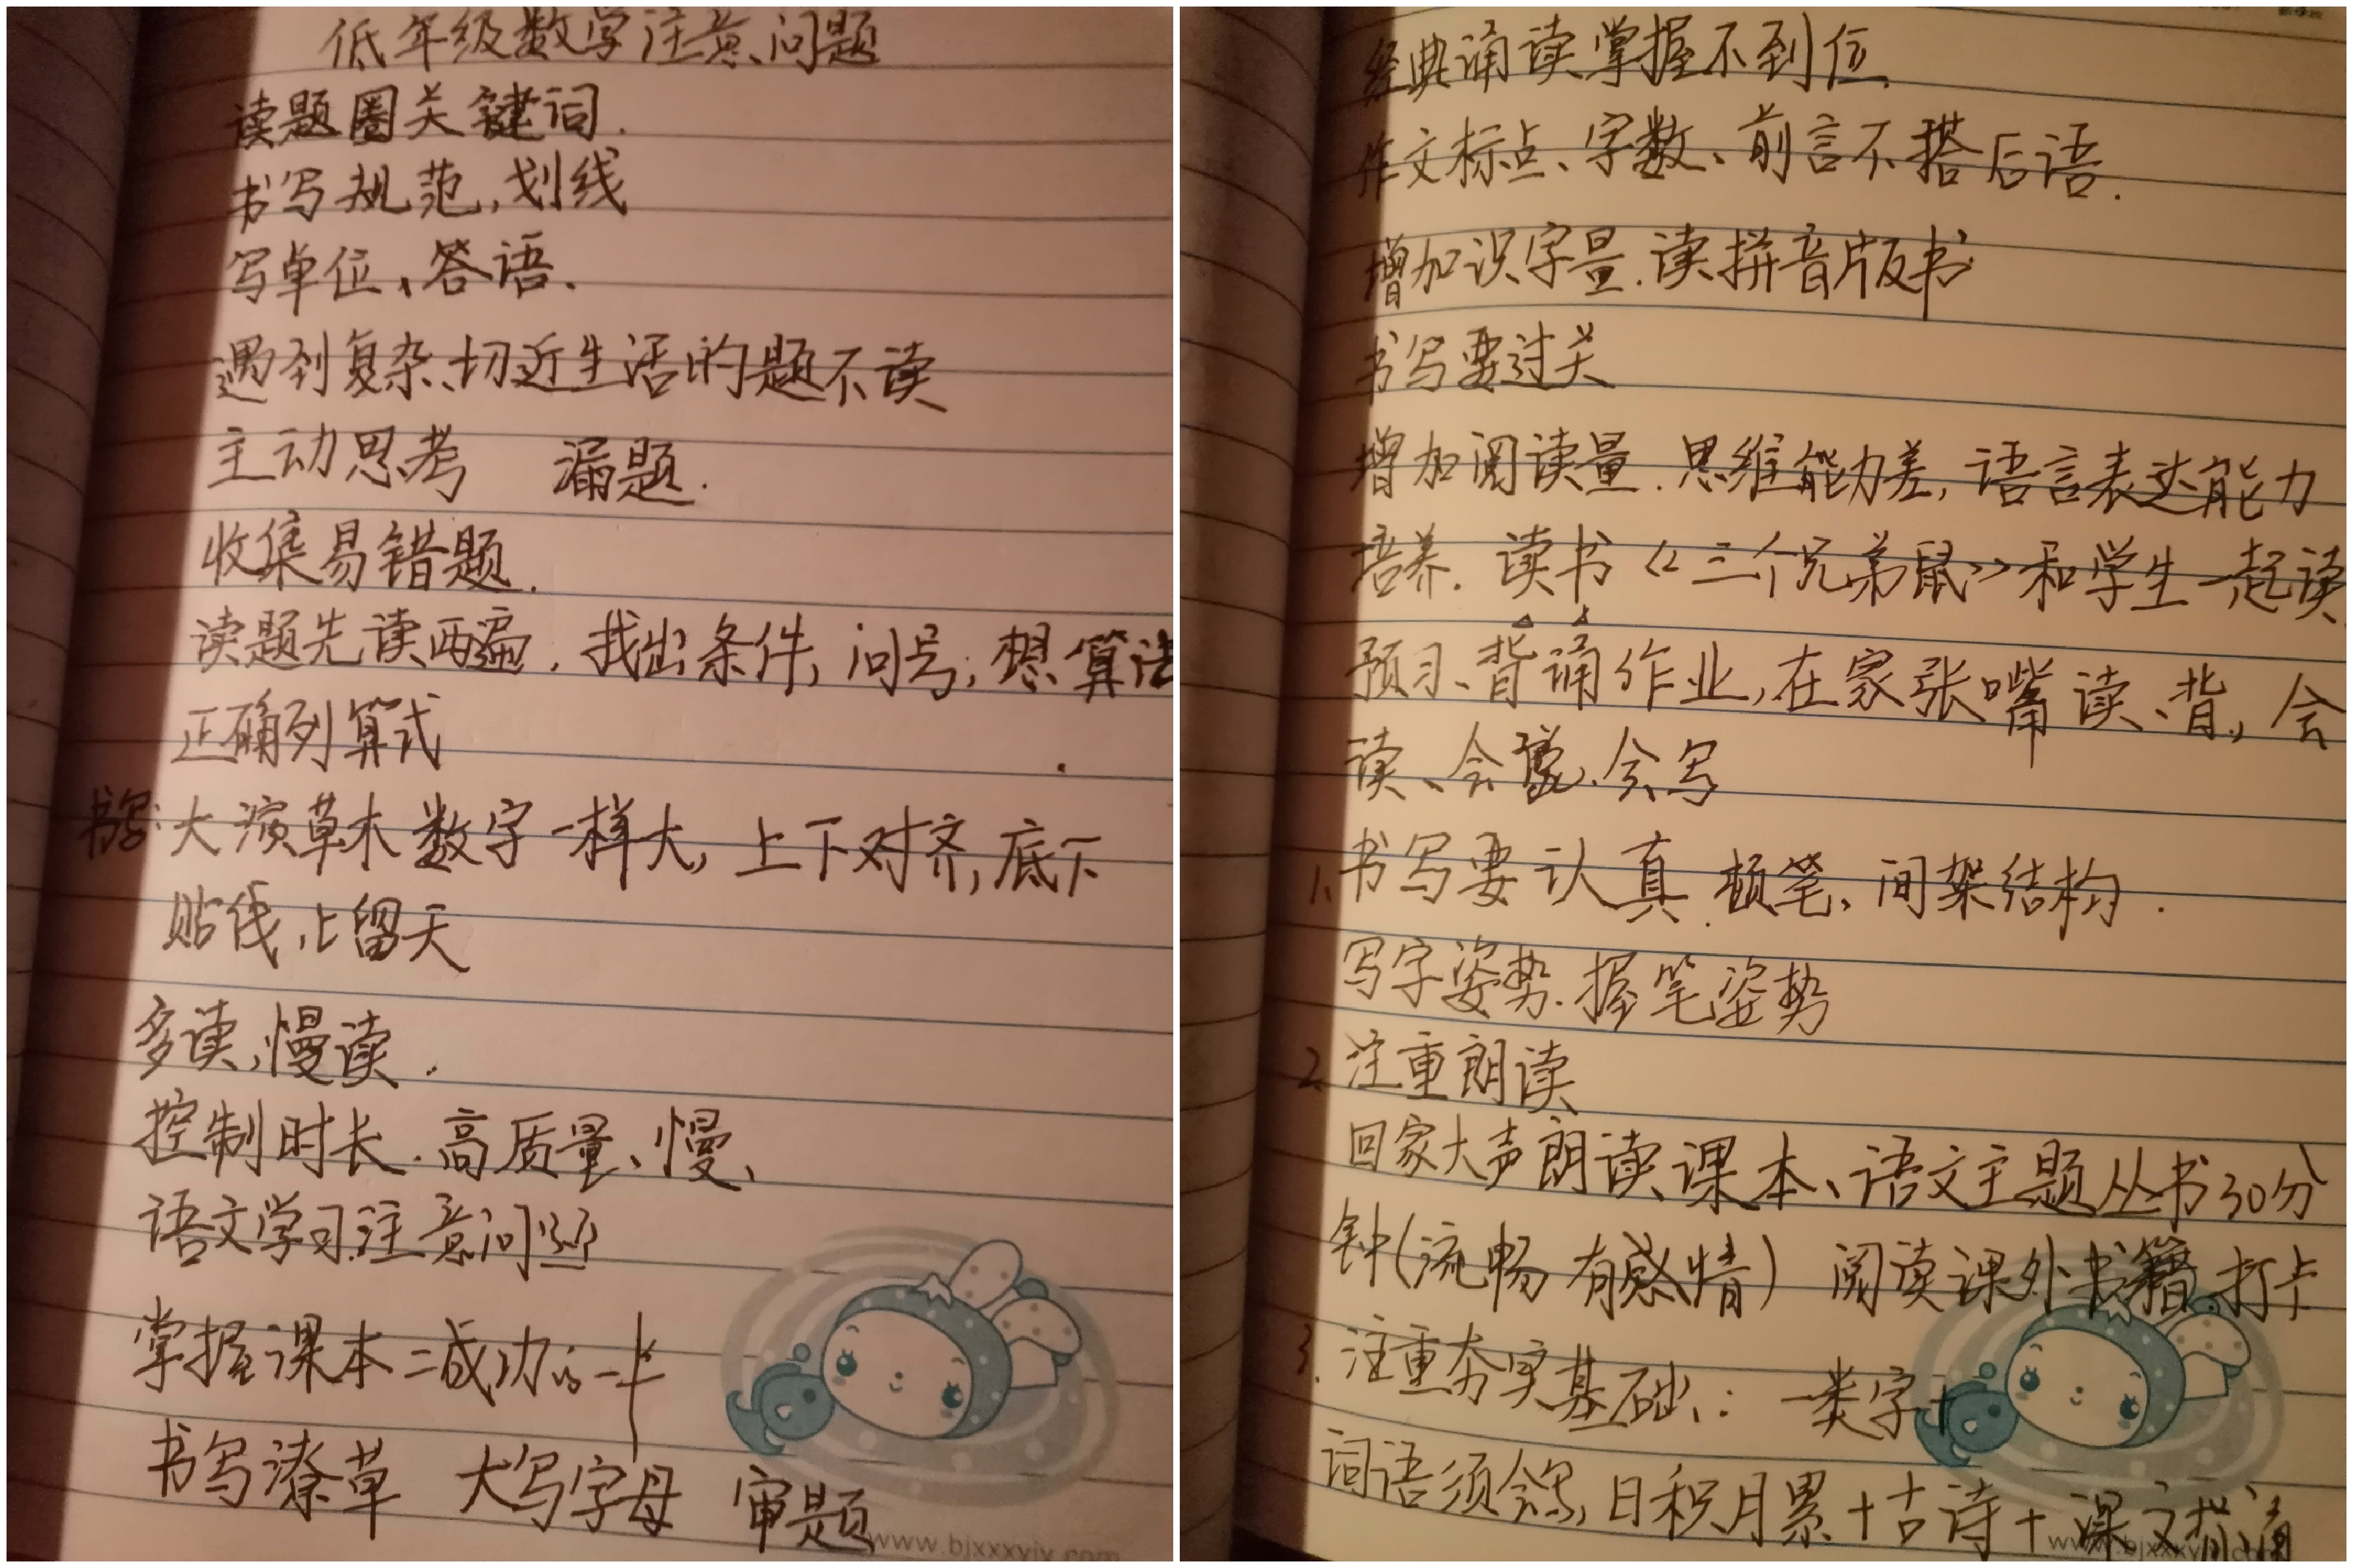 低年级数学注意问题
读题圈关键词.
书写规范,划线
写单位、答语.
遇到复杂、切近生活的题不读
主动思考 漏题.
收集易错题.
读题先读两遍.找出条件,问号,想算法
正确列算式
书写:大演草本数字一样大,上下对齐,底下
贴线,上留天
多读,慢读.
控制时长.高质量、慢、
语文学习注意问题
掌握课本=成功的一半
书写潦草 大写字母 审题
www.bjxxxyjy.com
经典诵读掌握不到位
作文标点、字数、前言不搭后语.
增加识字量.读拼音版书
书写要过关
增加阅读量.思维能力差,语言表达能力
培养.读书《三个兄弟鼠》和学生一起读
预习、背诵作业,在家张嘴读、背,会
读、会说、会写
1、书写要认真.顿笔、间架结构.
写字姿势.握笔姿势
2、注重朗读
回家大声朗读课本、语文主题丛书30分
钟(流畅 有感情) 阅读课外书籍 打卡
3.注重夯实基础:一类字+
词语须会写,日积月累+古诗+课文背诵